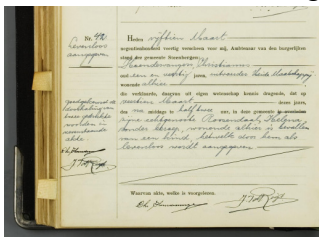 Nr. 42
Levenloos
aangegeven
Goedgekeurd de
doorhaling van
twee gedrukte
woorden in
nevenstaande
akte.
Heden vijftien Maart
negentienhonderd veertig verscheen voor mij, Ambtenaar van den burgerlijken
stand der gemeente Steenbergen:
Christianus
oud een en veertig jaren,
wonende alhier
die verklaarde, daarvan uit eigen wetenschap kennis dragende, dat op
veertien Maart dezes jaars,
des middags te half een uur, in deze gemeente
zijne echtgenoote Roosendaal, Helena,
zonder beroep, wonende alhier is bevallen
van een kind, hetwelk door hem als
levenloos wordt aangegeven
Waarvan akte, welke is voorgelezen.